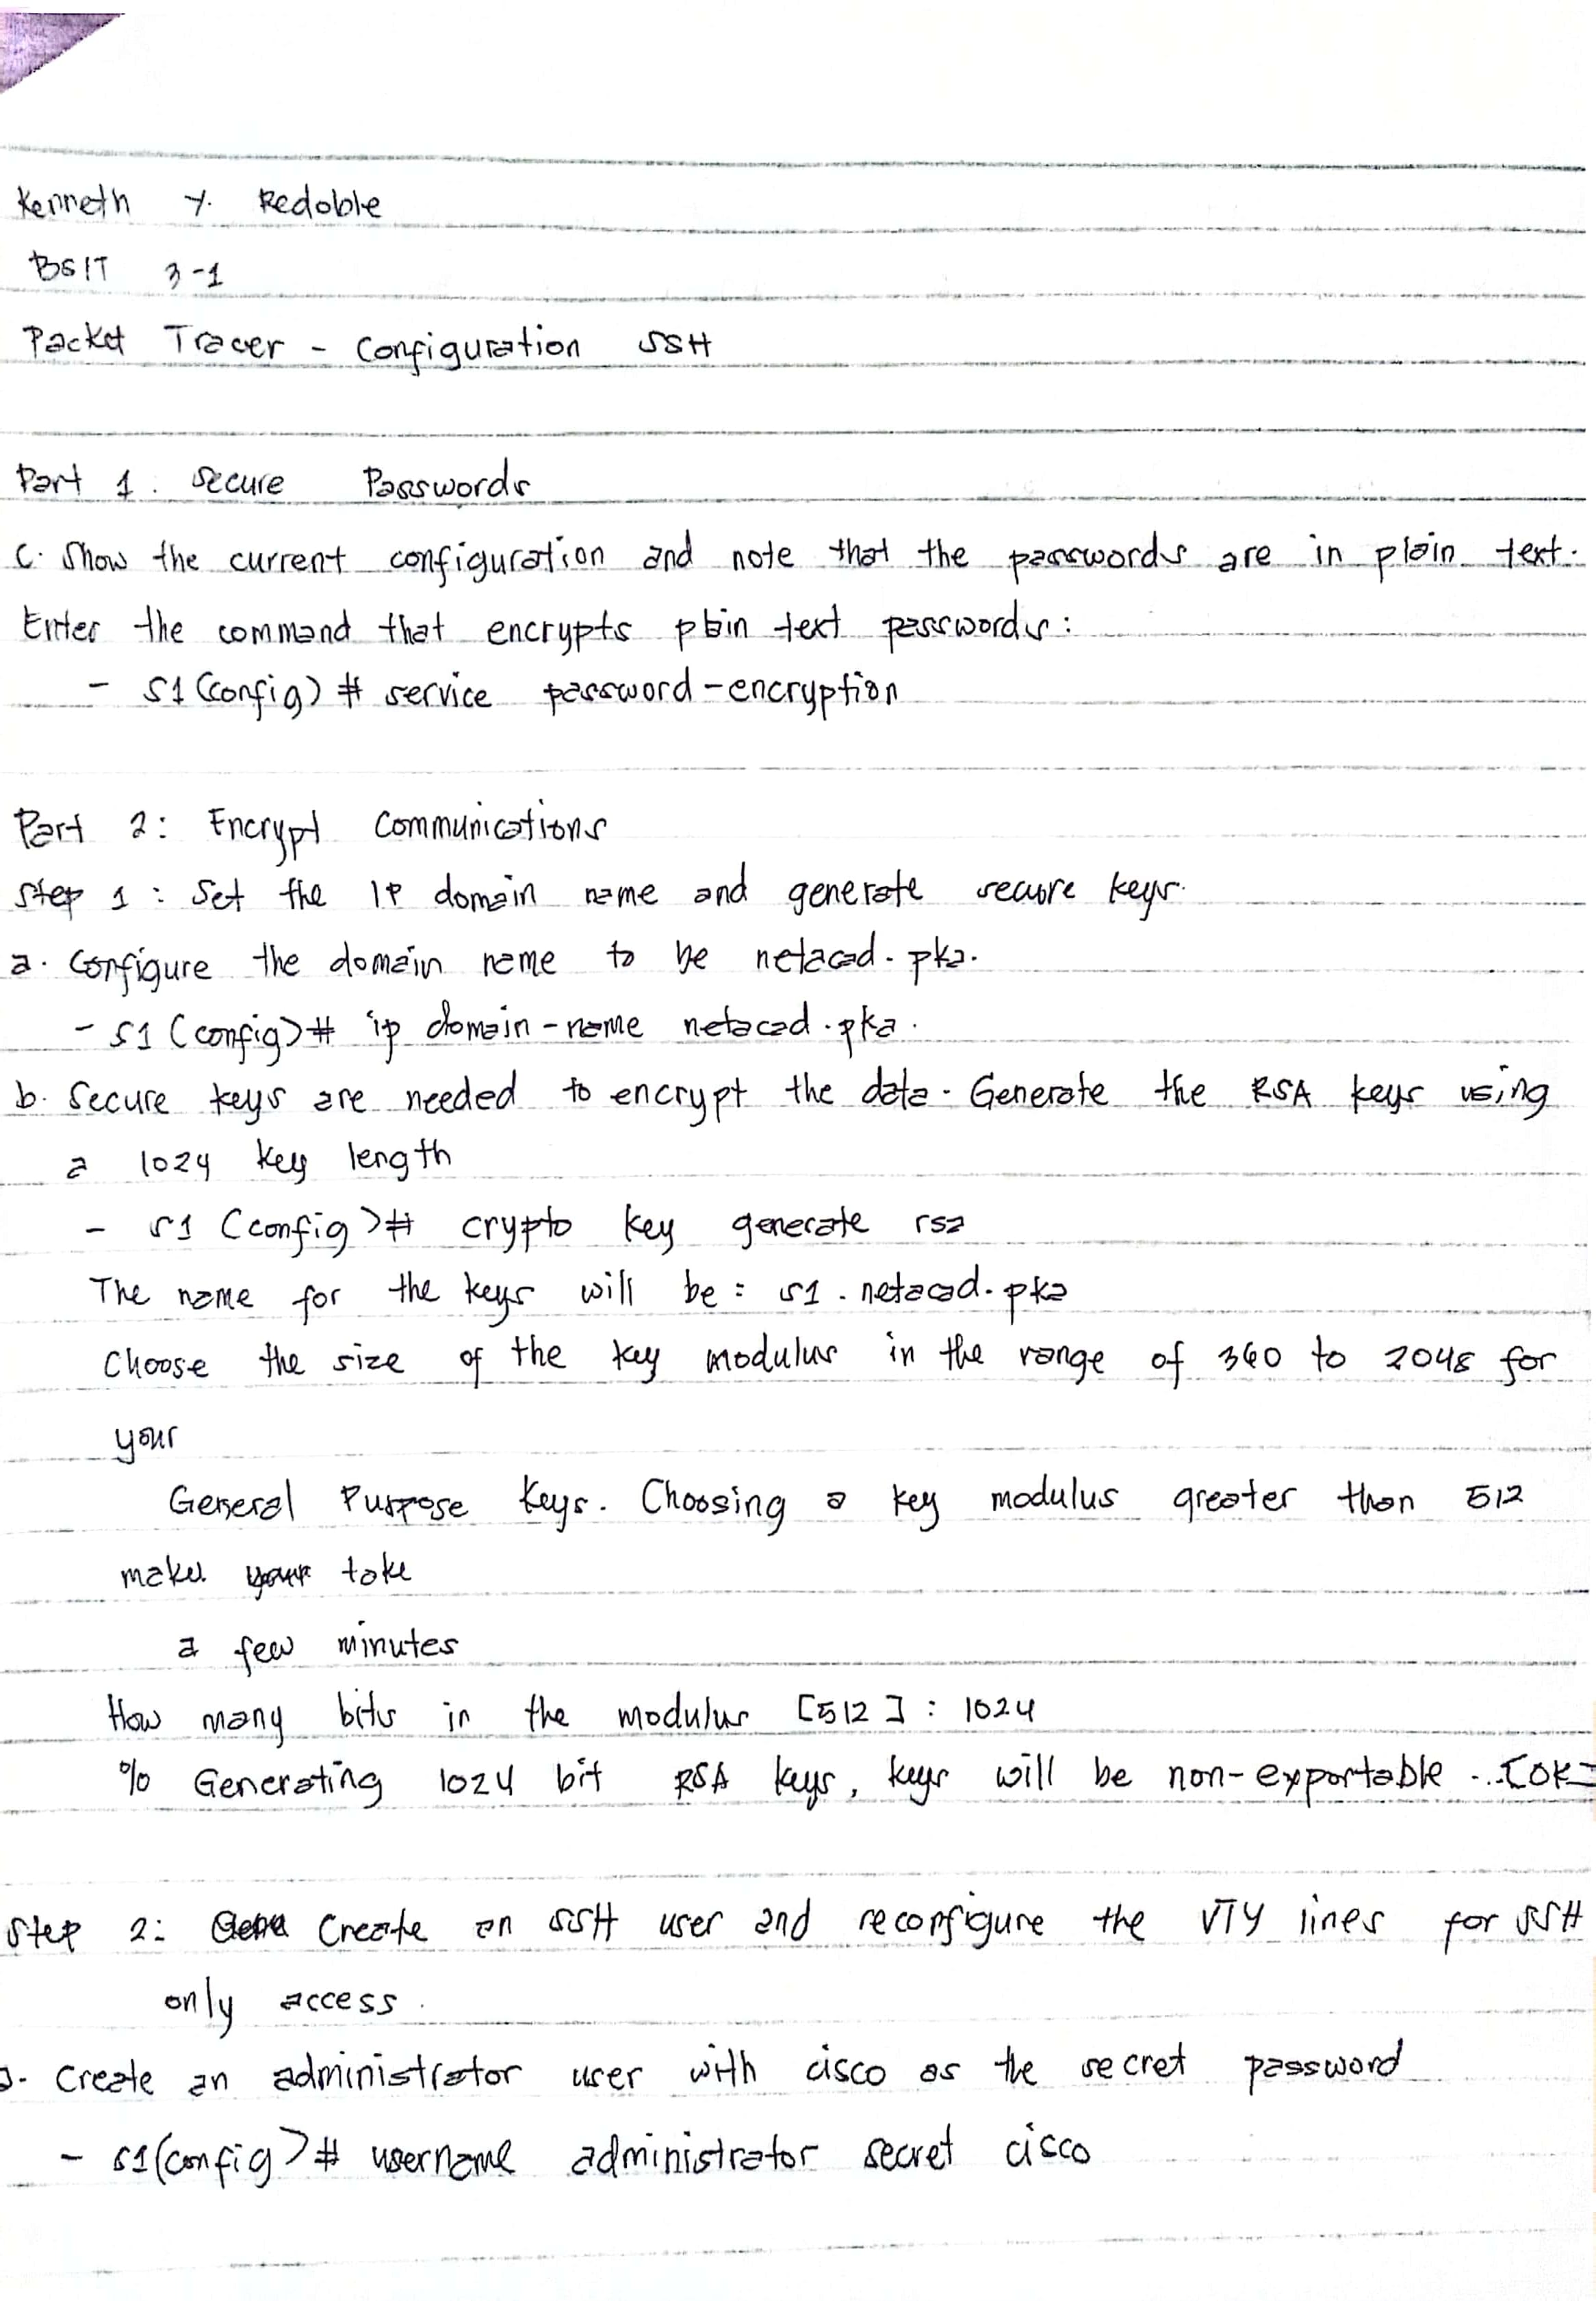 Kenneth Y. Redoble
BSIT 3-1
Packet Tracer - Configuration SSH
Part 1. Secure Passwords
C. Show the current configuration and note that the passwords are in plain text.
Enter the command that encrypts plain text passwords:
- S1 (config) # service password-encryption
Part 2: Encrypt Communications
Step 1: Set the IP domain name and generate secure keys.
a. Configure the domain name to be netacad.pka.
- S1 (config)# ip domain-name netacad.pka.
b. Secure keys are needed to encrypt the data. Generate the RSA keys using
a 1024 key length
- S1 (config)# crypto key generate rsa
The name for the keys will be: S1.netacad.pka
Choose the size of the key modulus in the range of 360 to 2048 for
your
General Purpose Keys. Choosing a key modulus greater than 512
make take
a few minutes
How many bits in the modulus [512]: 1024
% Generating 1024 bit RSA keys, keys will be non-exportable ...[OK]
Step 2: Create an SSH user and reconfigure the VTY lines for SSH
only access.
a. Create an administrator user with cisco as the secret password
- S1(config)# username administrator secret cisco